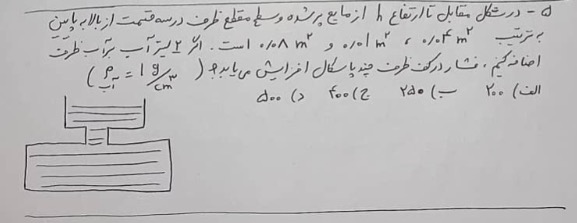 ۵ - در شکل مقابل تا ارتفاع h از مایع پر شده و سطح مقطع ظرف در سه قسمت از بالا به پایین
به ترتیب ۰/۰۴ m² ، ۰/۰۱ m² و ۰/۰۸ m² است. اگر ۲ لیتر آب بر آب ظرف
اضافه کنیم، فشار در کف ظرف چند پاسکال افزایش می یابد؟ (ρ آب = 1 g/cm³)
الف) ۲۰۰ ب) ۲۵۰ ج) ۴۰۰ د) ۵۰۰